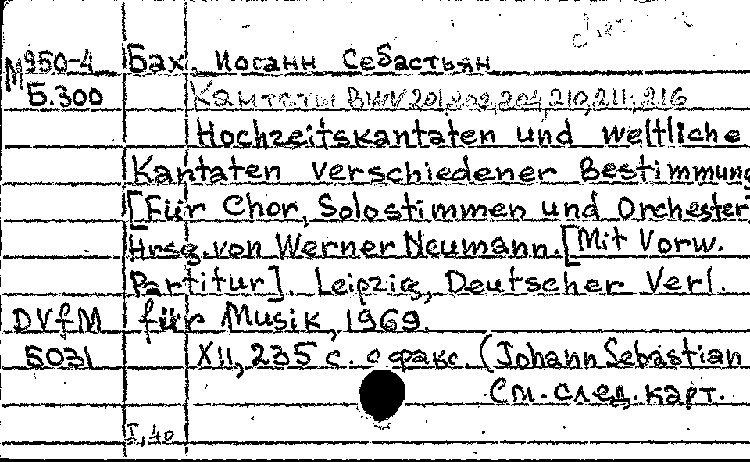 М950-4 Бах, Иоганн Себастьян
Б.300 Кантаты BWV 201,202,204,210,211,216
Hochzeitskantaten und weltliche
Kantaten verschiedener Bestimmung
[Für Chor, Solostimmen und Orchester]
Hrsg. von Werner Neumann. [Mit Vorw.
Partitur]. Leipzig, Deutscher Verl.
DVfM für Musik, 1969.
6031 XII, 235 с. с факс. (Johann Sebastian
См. след. карт.
I,40